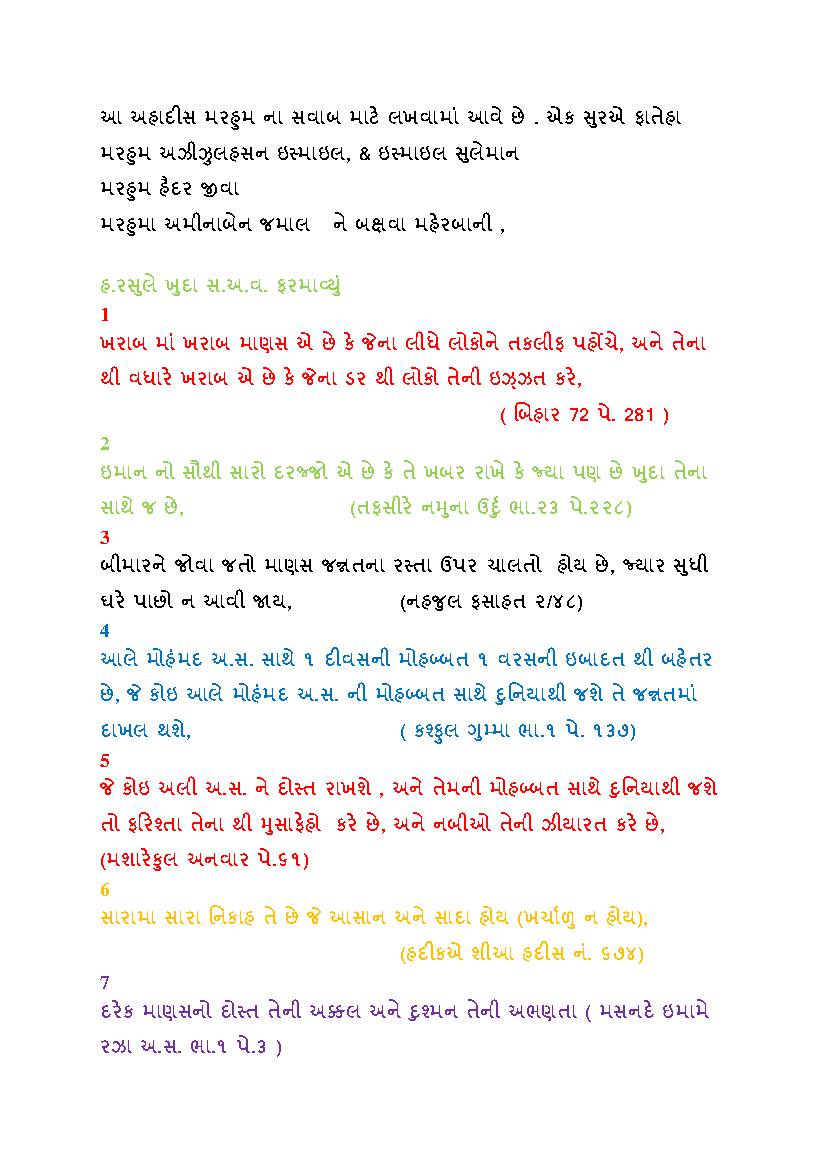 આ અહાદીસ મરહુમ ના સવાબ માટે લખવામાં આવે છે . એક સુરએ ફાતેહા
મરહુમ અઝીઝુલહસન ઇસ્માઇલ, & ઇસ્માઇલ સુલેમાન
મરહુમ હૈદર જીવા
મરહુમા અમીનાબેન જમાલ ને બક્ષવા મહેરબાની ,
હ.રસુલે ખુદા સ.અ.વ. ફરમાવ્યું
1
ખરાબ માં ખરાબ માણસ એ છે કે જેના લીધે લોકોને તકલીફ પહોંચે, અને તેના
થી વધારે ખરાબ એ છે કે જેના ડર થી લોકો તેની ઇઝ્ઝત કરે,
( બિહાર 72 પે. 281 )
2
ઇમાન નો સૌથી સારો દરજ્જો એ છે કે તે ખબર રાખે કે જ્યા પણ છે ખુદા તેના
સાથે જ છે, (તફસીરે નમુના ઉર્દુ ભા.૨૩ પે.૨૨૮)
3
બીમારને જોવા જતો માણસ જન્નતના રસ્તા ઉપર ચાલતો હોય છે, જ્યાર સુધી
ઘરે પાછો ન આવી જાય, (નહજુલ ફસાહત ૨/૪૮)
4
આલે મોહંમદ અ.સ. સાથે ૧ દીવસની મોહબ્બત ૧ વરસની ઇબાદત થી બહેતર
છે, જે કોઇ આલે મોહંમદ અ.સ. ની મોહબ્બત સાથે દુનિયાથી જશે તે જન્નતમાં
દાખલ થશે, ( કશ્ફુલ ગુમ્મા ભા.૧ પે. ૧૩૭)
5
જે કોઇ અલી અ.સ. ને દોસ્ત રાખશે , અને તેમની મોહબ્બત સાથે દુનિયાથી જશે
તો ફરિશ્તા તેના થી મુસાફેહો કરે છે, અને નબીઓ તેની ઝીયારત કરે છે,
(મશારેકુલ અનવાર પે.૬૧)
6
સારામા સારા નિકાહ તે છે જે આસાન અને સાદા હોય (ખર્ચાળુ ન હોય),
(હદીકએ શીઆ હદીસ નં. ૬૭૪)
7
દરેક માણસનો દોસ્ત તેની અક્ક્લ અને દુશ્મન તેની અભણતા ( મસનદે ઇમામે
રઝા અ.સ. ભા.૧ પે.૩ )